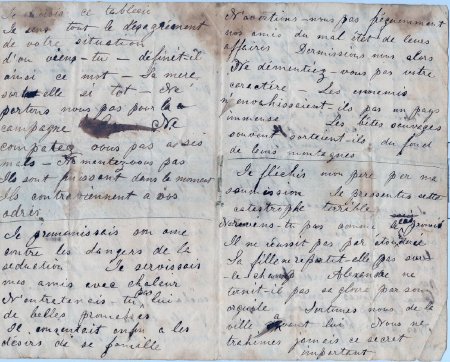 ce tableau
Je sens tout le
de votre situation
d'où viens-tu — définit-il
ainsi ce mot — La mère
sort elle si tôt — Ne
partons nous pas pour la
campagne Ne
comptez vous pas ses
mals — Ne mentez vous pas
Ils sont puissant dans le moment
Ils contreviennent a vos
ordres
Je premunissais son ame
contre les dangers de la
seduction Je servissais
mes amis avec chaleur
N'entretenais-tu pas lui
de belles promesses
Il consentait enfin a les
desirs de se famille
N'avertims-nous pas fréquemment
nos amis du mal état de leurs
affaires Dormissions nous alors
Ne démentiez-vous pas votre
caractère — Les ennemis
n'envahissaient-ils pas un pays
immense Les bêtes sauvages
souvent sortaient-ils du fond
de leurs montagnes
Je flechis mon père per ma
soumission Je pressentis cette
catastrophe terrible
-tu pas comme le
Il ne réussit pas par
La fille ne repartit-elle pas sur
-le champ Alexandre ne
ternit-il pas sa gloire par son
orgueile Sortimes nous de la
ville avant lui Nous ne
trahimes jamais ce secret
important